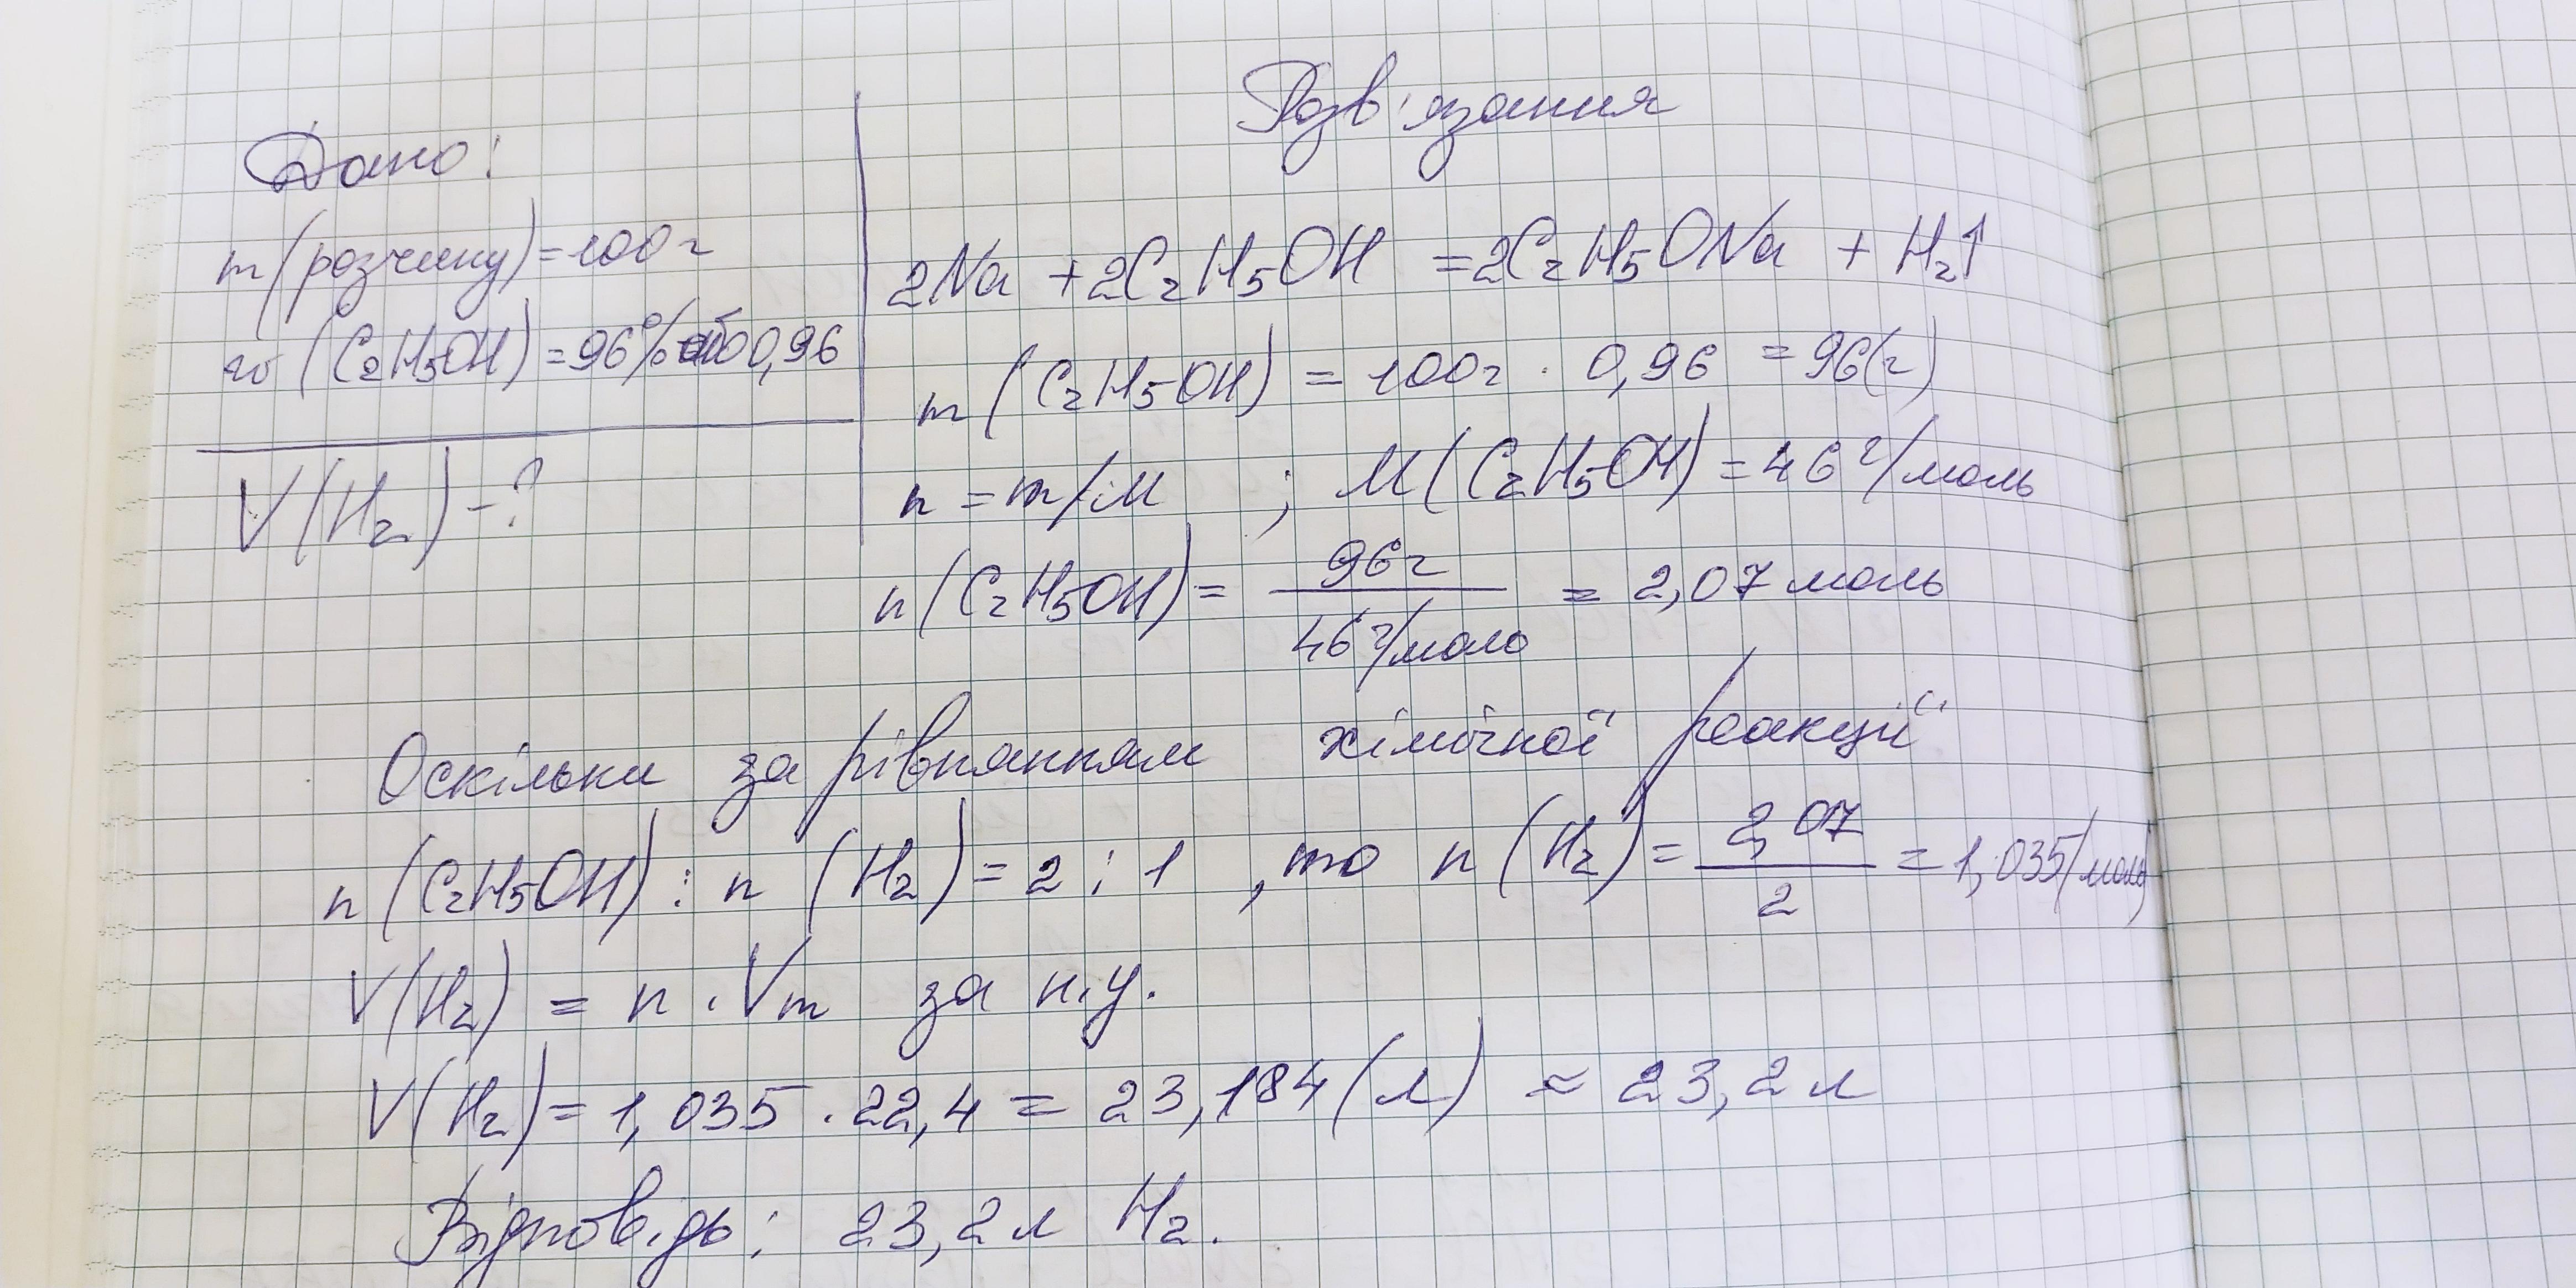 Дано:
m(розчину)=100г
w(C₂H₅OH)=96% або 0,96
V(H₂)-?
Розв'язання
2Na + 2C₂H₅OH = 2C₂H₅ONa + H₂↑
m(C₂H₅OH) = 100г · 0,96 = 96(г)
n = m/M ; M(C₂H₅OH) = 46 г/моль
n(C₂H₅OH) = 96г / 46 г/моль = 2,07 моль
Оскільки за рівнянням хімічної реакції
n(C₂H₅OH) : n(H₂) = 2 : 1 , то n(H₂) = 2,07 / 2 = 1,035(моль)
V(H₂) = n · Vm за н.у.
V(H₂) = 1,035 · 22,4 = 23,184(л) ≈ 23,2л
Відповідь: 23,2л H₂.